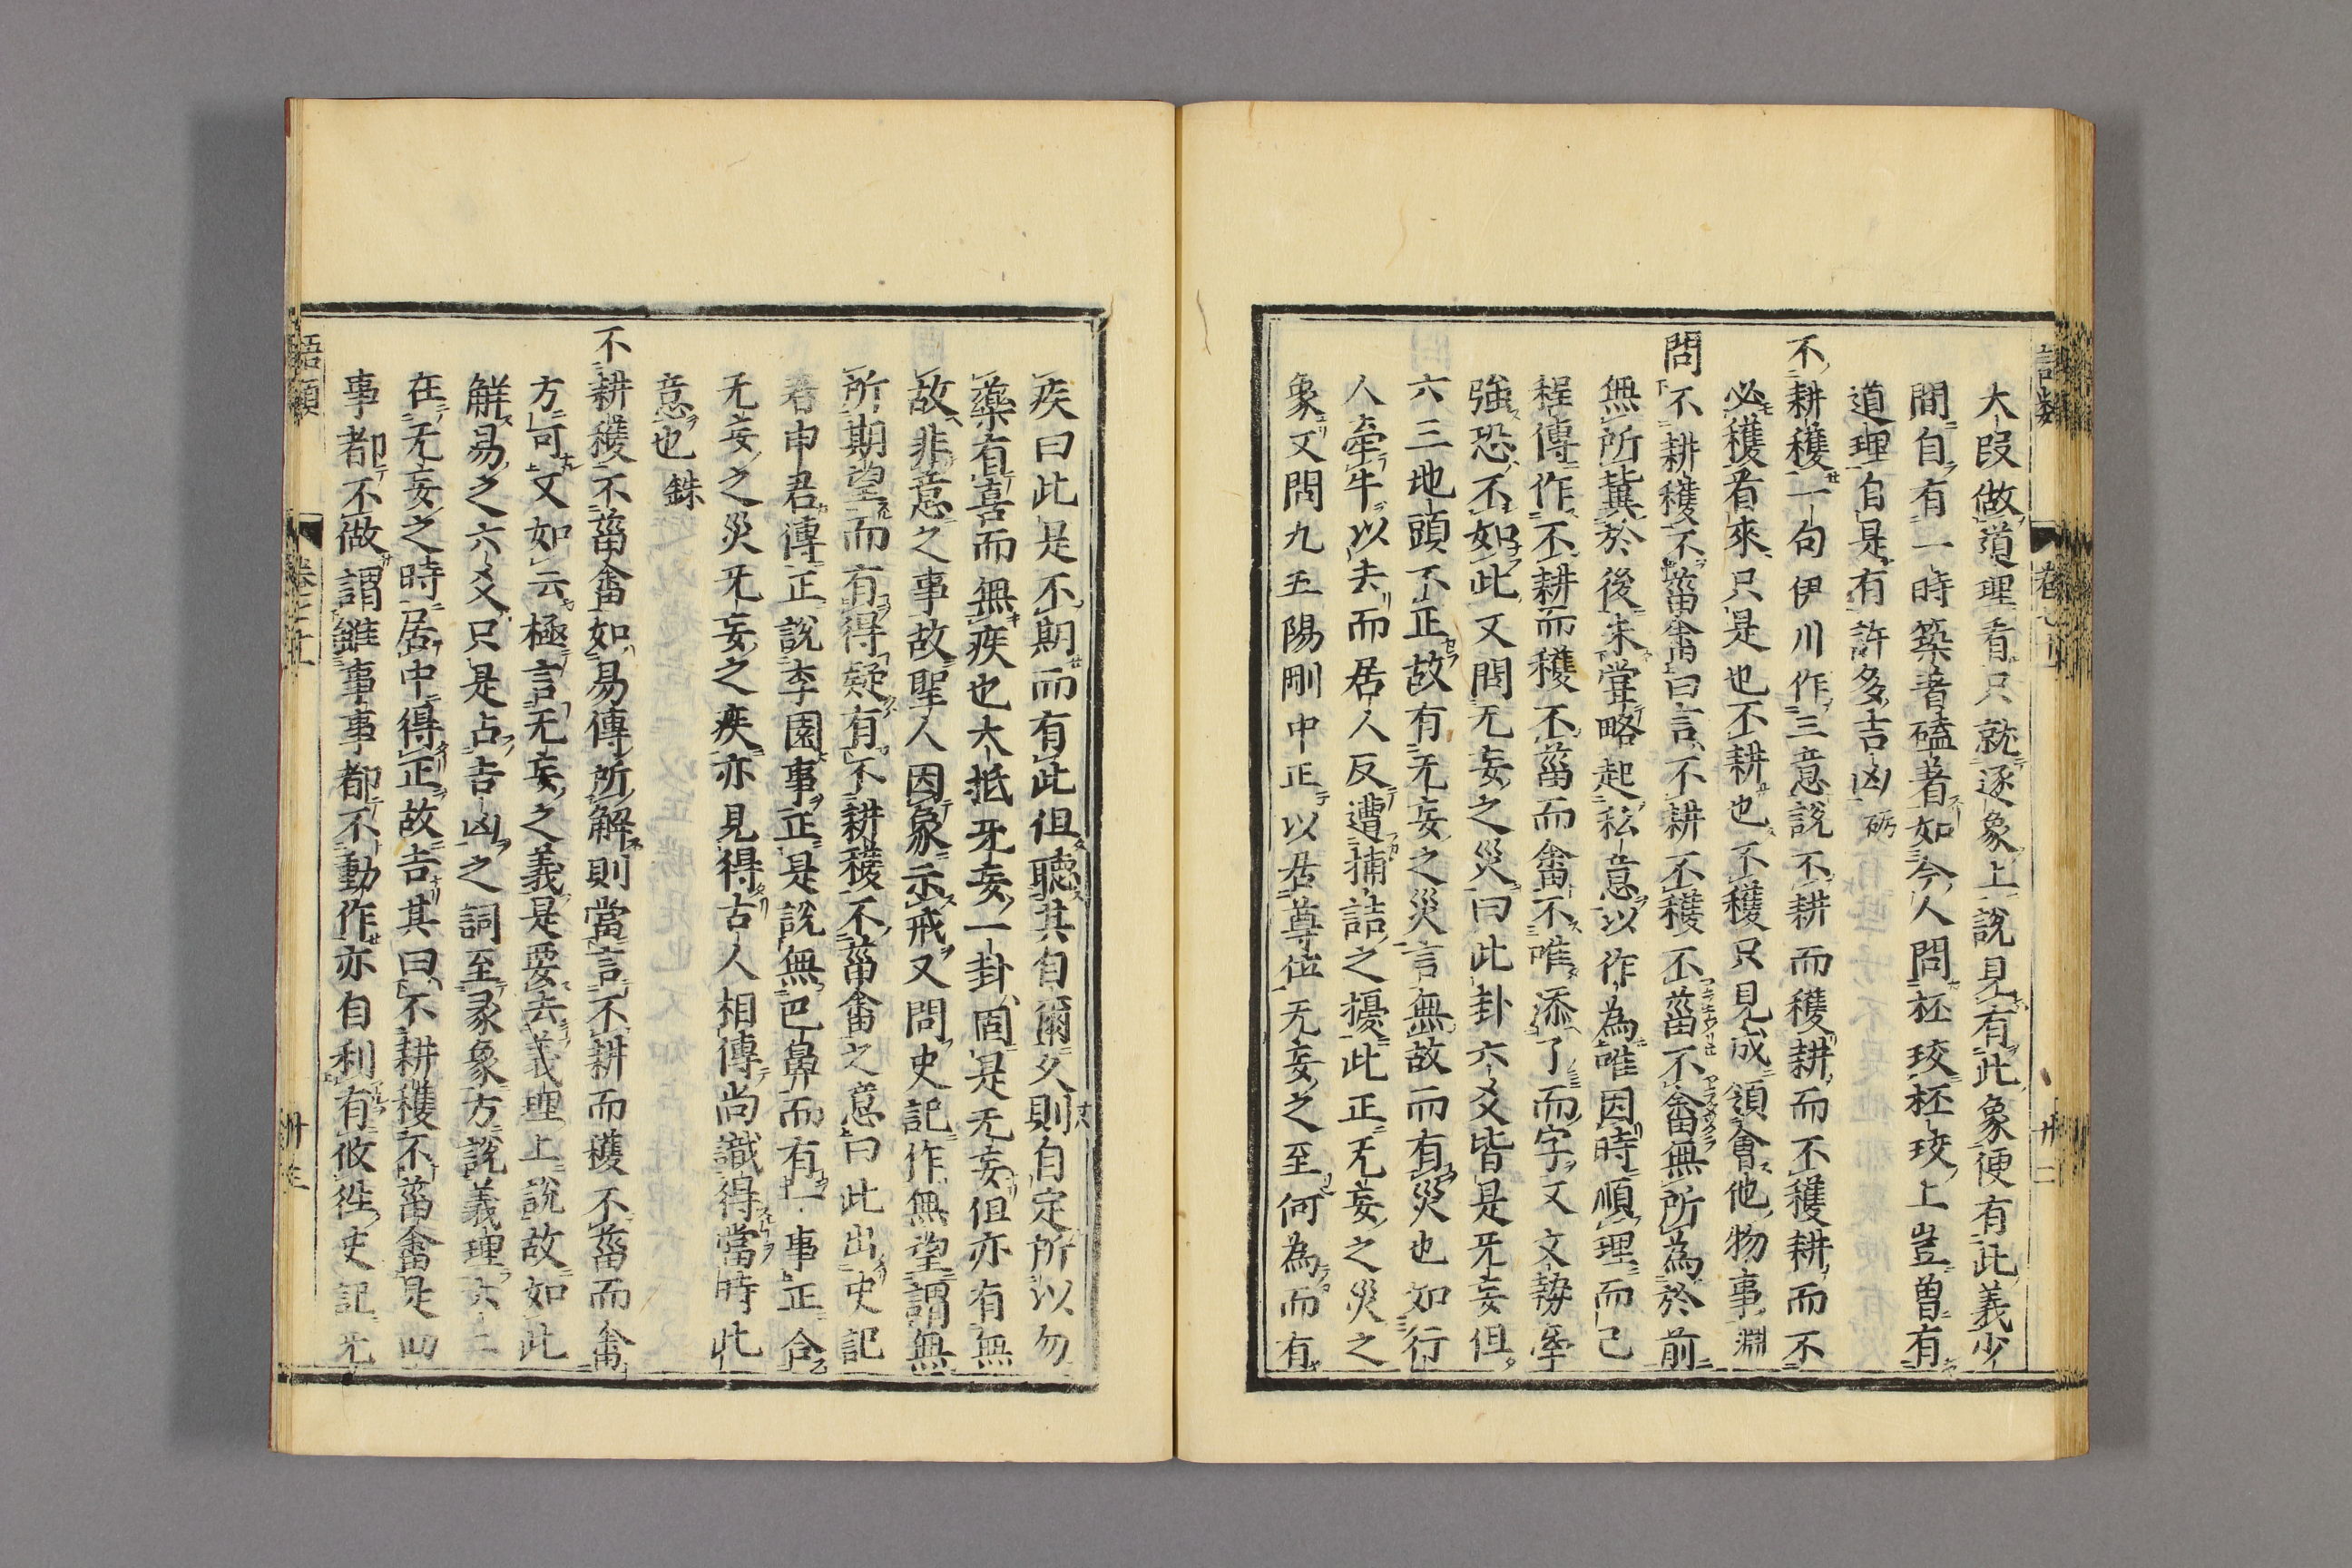 大段做道理看只就逐象上說見有此象便有此義少
間自有一時築著磕著如今人問杯珓杯珓上豈曾有
道理自是有許多吉凶 砺
不耕穫一句伊川作三意說不耕而穫耕而不穫耕而不
必穫看來只是也不耕也不穫只見成領會他物事 淵
問不耕穫不菑畬曰言不耕不穫不菑不畬無所為於前
無所冀於後未嘗略起私意以作為唯因時順理而已
程傳作不耕而穫不菑而畬不唯添了而字又文勢牽
強恐不如此又問无妄之災曰此卦六爻皆是无妄但
六三地頭不正故有无妄之災言無故而有災也如行
人牽牛以去而居人反遭捕詰之擾此正无妄之災之
象又問九五陽剛中正以居尊位无妄之至何為而有
疾曰此是不期而有此但聽其自爾久則自定所以勿
藥有喜而無疾也大抵无妄一卦固是无妄但亦有無
故非意之事故聖人因象示戒又問史記作無望謂無
所期望而有得疑有不耕穫不菑畬之意曰此出史記
春申君傳正說李園事正是說無巴鼻而有一事正合
无妄之災无妄之疾亦見得古人相傳尚識得當時此
意也 銖
不耕穫不菑畬如易傳所解則當言不耕而穫不菑而畬
方可又如云極言无妄之義是要去義理上說故如此
解易之六爻只是占吉凶之詞至彖象方說義理六二
在无妄之時居中得正故吉其曰不耕穫不菑畬是四
事都不做謂雖事事都不動作亦自利有攸往史記无